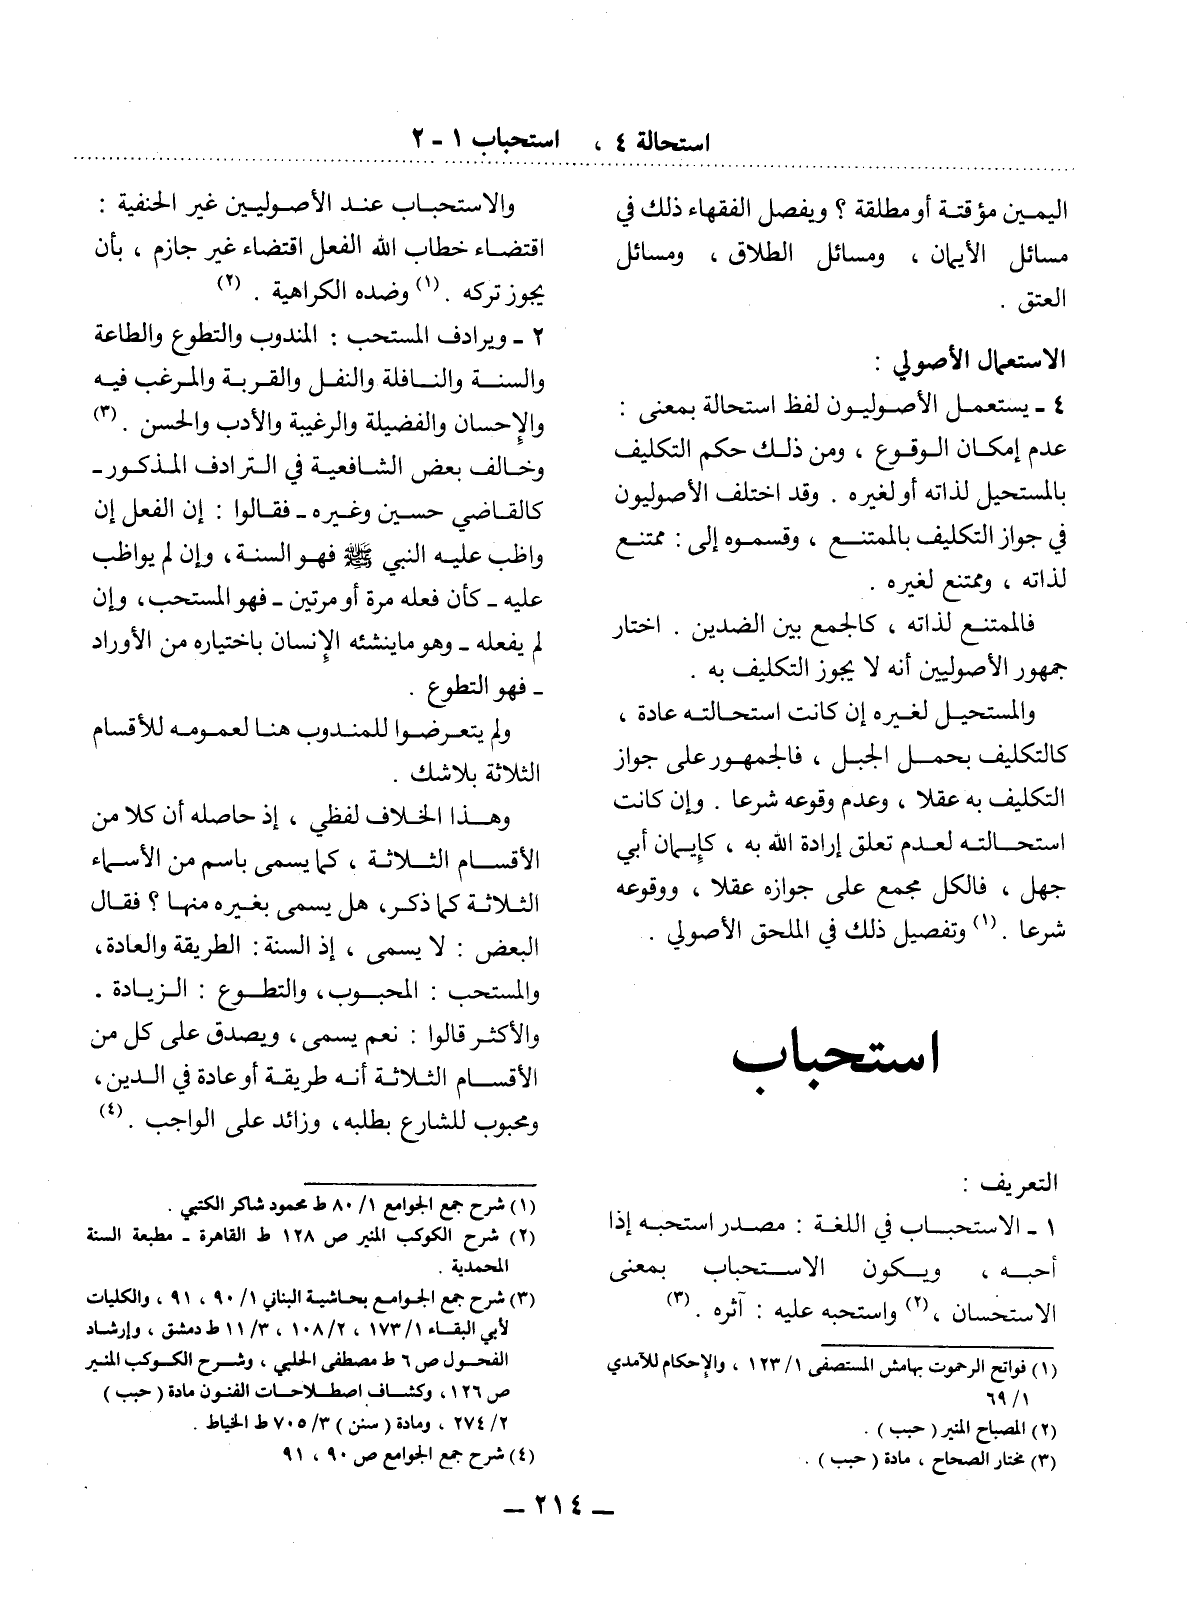 استحالة ٤ ، استحباب ١ - ٢
اليمين مؤقتة أو مطلقة ؟ ويفصل الفقهاء ذلك في
مسائل الأيمان ، ومسائل الطلاق ، ومسائل
العتق .
الاستعمال الأصولي :
٤ - يستعمل الأصوليون لفظ استحالة بمعنى :
عدم إمكان الوقوع ، ومن ذلك حكم التكليف
بالمستحيل لذاته أو لغيره . وقد اختلف الأصوليون
في جواز التكليف بالممتنع ، وقسموه إلى : ممتنع
لذاته ، وممتنع لغيره .
فالممتنع لذاته ، كالجمع بين الضدين . اختار
جمهور الأصوليين أنه لا يجوز التكليف به .
والمستحيل لغيره إن كانت استحالته عادة ،
كالتكليف بحمل الجبل ، فالجمهور على جواز
التكليف به عقلا ، وعدم وقوعه شرعا . وإن كانت
استحالته لعدم تعلق إرادة الله به ، كإيمان أبي
جهل ، فالكل مجمع على جوازه عقلا ، ووقوعه
شرعا . (١) وتفصيل ذلك في الملحق الأصولي .
استحباب
التعريف :
١ - الاستحباب في اللغة : مصدر استحبه إذا
أحبه ، ويكون الاستحباب بمعنى
الاستحسان ، (٢) واستحبه عليه : آثره . (٣)
(١) فواتح الرحموت بهامش المستصفى ١/ ١٢٣ ، والإحكام للآمدي
١/ ٦٩
(٢) المصباح المنير ( حبب ) .
(٣) مختار الصحاح ، مادة ( حبب ) .
والاستحباب عند الأصوليين غير الحنفية :
اقتضاء خطاب الله الفعل اقتضاء غير جازم ، بأن
يجوز تركه . (١) وضده الكراهية . (٢)
٢ - ويرادف المستحب : المندوب والتطوع والطاعة
والسنة والنافلة والنفل والقربة والمرغب فيه
والإحسان والفضيلة والرغيبة والأدب والحسن . (٣)
وخالف بعض الشافعية في الترادف المذكور -
كالقاضي حسين وغيره - فقالوا : إن الفعل إن
واظب عليه النبي ﷺ فهو السنة ، وإن لم يواظب
عليه - كأن فعله مرة أو مرتين - فهو المستحب ، وإن
لم يفعله - وهو ماينشئه الإنسان باختياره من الأوراد
- فهو التطوع .
ولم يتعرضوا للمندوب هنا لعمومه للأقسام
الثلاثة بلاشك .
وهذا الخلاف لفظي ، إذ حاصله أن كلا من
الأقسام الثلاثة ، كما يسمى باسم من الأسماء
الثلاثة كما ذكر ، هل يسمى بغيره منها ؟ فقال
البعض : لا يسمى ، إذ السنة : الطريقة والعادة ،
والمستحب : المحبوب ، والتطوع : الزيادة .
والأكثر قالوا : نعم يسمى ، ويصدق على كل من
الأقسام الثلاثة أنه طريقة أو عادة في الدين ،
ومحبوب للشارع بطلبه ، وزائد على الواجب . (٤)
(١) شرح جمع الجوامع ١/ ٨٠ ط محمود شاكر الكتبي .
(٢) شرح الكوكب المنير ص ١٢٨ ط القاهرة - مطبعة السنة
المحمدية .
(٣) شرح جمع الجوامع بحاشية البناني ١/ ٩٠ ، ٩١ ، والكليات
لأبي البقاء ١/ ١٧٣ ، ٢/ ١٠٨ ، ٣/ ١١ ط دمشق ، وإرشاد
الفحول ص ٦ ط مصطفى الحلبي ، وشرح الكوكب المنير
ص ١٢٦ ، وكشاف اصطلاحات الفنون مادة ( حبب )
٢/ ٢٧٤ ، ومادة ( سنن ) ٣/ ٧٠٥ ط الخياط .
(٤) شرح جمع الجوامع ص ٩٠ ، ٩١
- ٢١٤ -